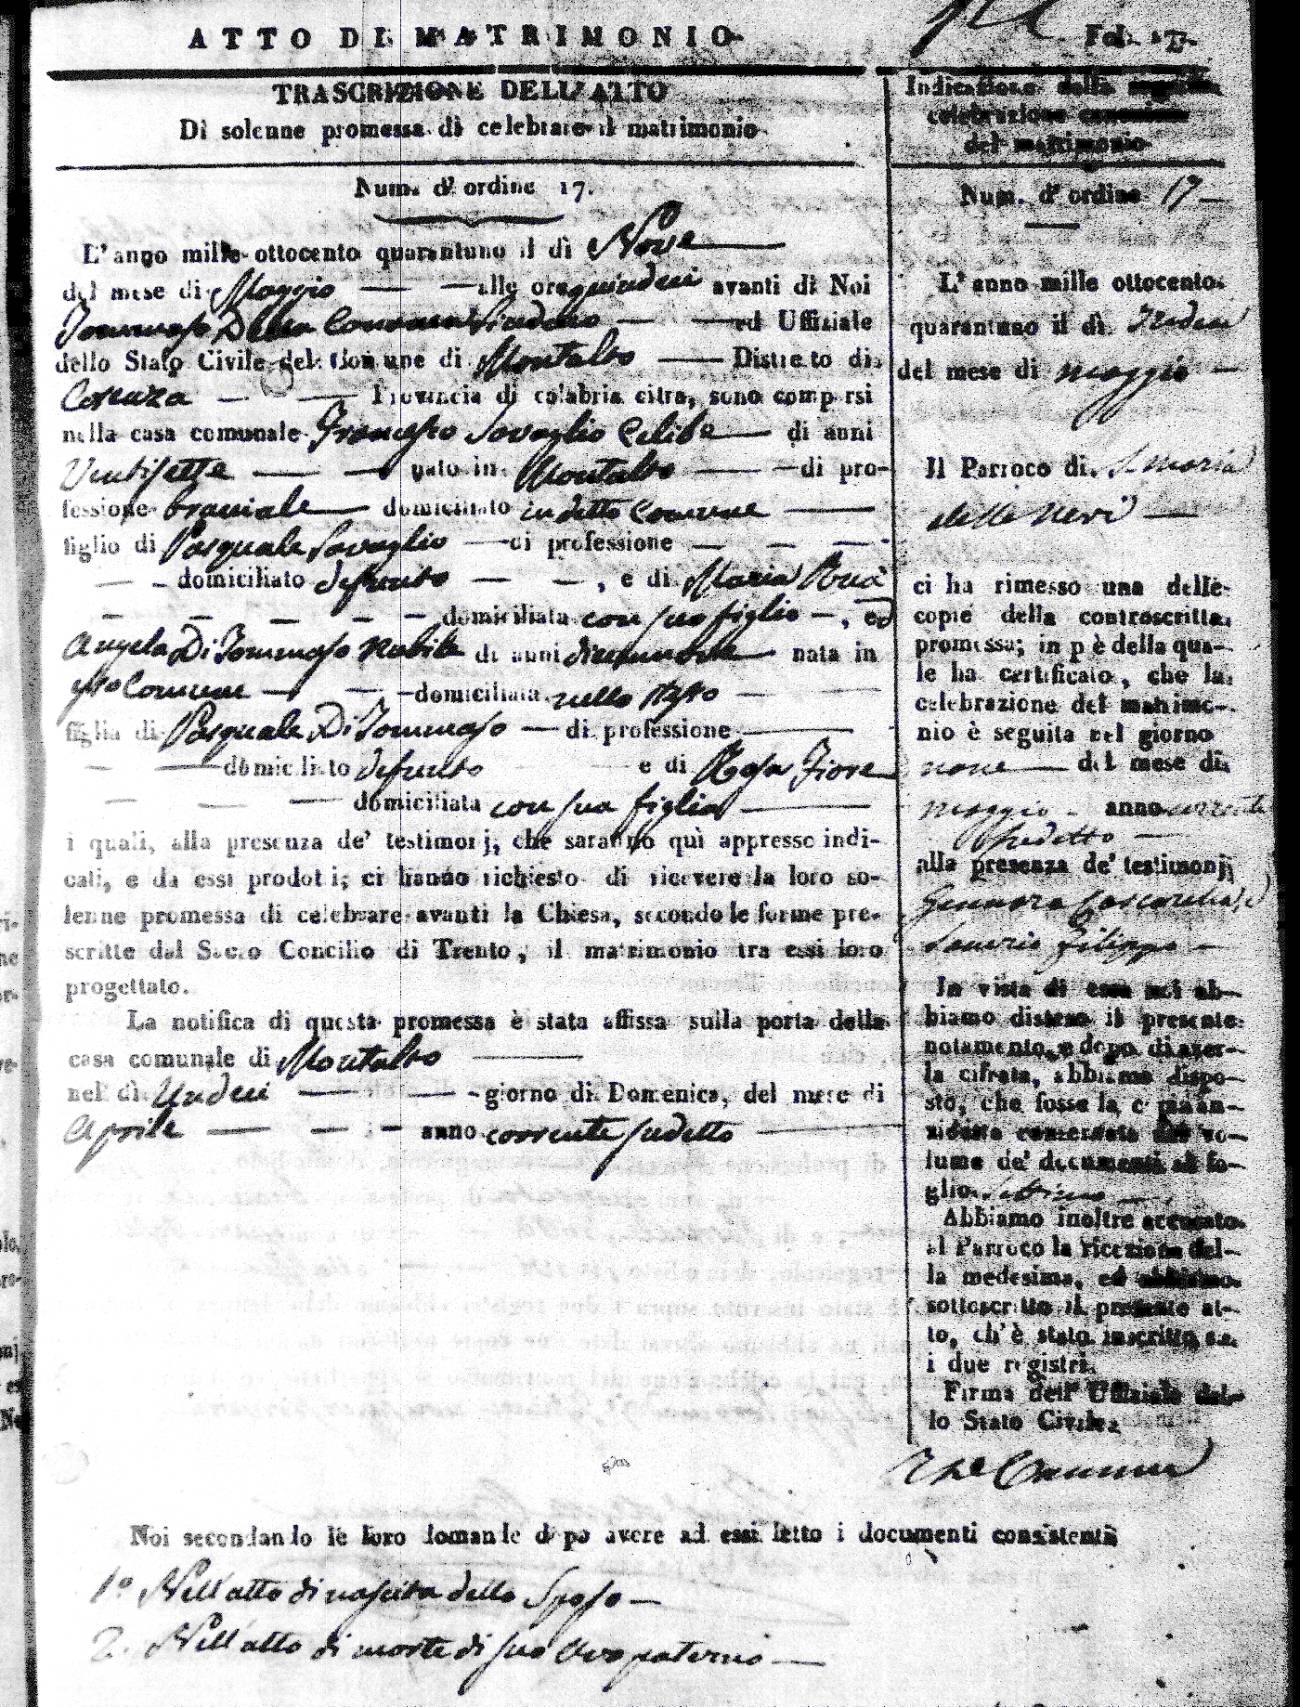 ATTO DI MATRIMONIO
Fol. 17
TRASCRIZIONE DELL'ATTO
Di solenne promessa di celebrare il matrimonio
Num. d'ordine 17.
L'anno mille ottocento quarantuno il dì Nove
del mese di Maggio alle ore quindeci avanti di Noi
Tommaso Della Sindaco ed Uffiziale
dello Stato Civile del Comune di Montalto Distretto di
Cosenza Provincia di calabria citra, sono comparsi
nella casa comunale Francesco Sovaglio Celibe di anni
Ventisette nato in Montalto di pro-
fessione bracciale domiciliato in detto Comune
figlio di Pasquale Sovaglio di professione
domiciliato defunto , e di Maria
domiciliata con suo figlio , ed
Angela Di Tommaso Nubile di anni diecinnove nata in
Comune domiciliata nello stesso
figlia di Pasquale Di Tommaso di professione
domiciliato defunto e di Rosa Fiore
domiciliata con sua figlia
i quali, alla presenza de' testimonj, che saranno quì appresso indi-
cati, e da essi prodotti; ci hanno richiesto di ricevere la loro so-
lenne promessa di celebrare avanti la Chiesa, secondo le forme pre-
scritte dal Sacro Concilio di Trento, il matrimonio tra essi loro
progettato.
La notifica di questa promessa è stata affissa sulla porta della
casa comunale di Montalto
nel dì Undeci giorno di Domenica, del mese di
Aprile anno corrente sudetto
Indicazione della
celebrazione
del matrimonio
Num. d'ordine 17
L'anno mille ottocento
quarantuno il dì Tredeci
del mese di maggio
Il Parroco di S. Maria
delle Nevi
ci ha rimesso una delle
copie della controscritta
promessa; in piè della qua-
le ha certificato, che la
celebrazione del matrimo-
nio è seguita nel giorno
nove del mese di
maggio anno corrente
sudetto
alla presenza de' testimonj
Gennaro
Saverio Filippo
In vista di essa noi ab-
biamo disteso il presente
notamento, e dopo di aver-
la cifrata, abbiamo dispo-
sto, che fosse la copia an-
zidetta conservata nel vo-
lume de' documenti al fo-
glio settimo
Abbiamo inoltre accusato
al Parroco la ricezione del-
la medesima, ed abbiamo
sottoscritto il presente at-
to, ch'è stato inscritto su
i due registri.
Firma dell' Uffiziale del-
lo Stato Civile
Noi secondando le loro domande dopo avere ad essi letto i documenti consistenti
1° Nell'atto di nascita dello Sposo
2. Nell'atto di morte di suo Avo paterno